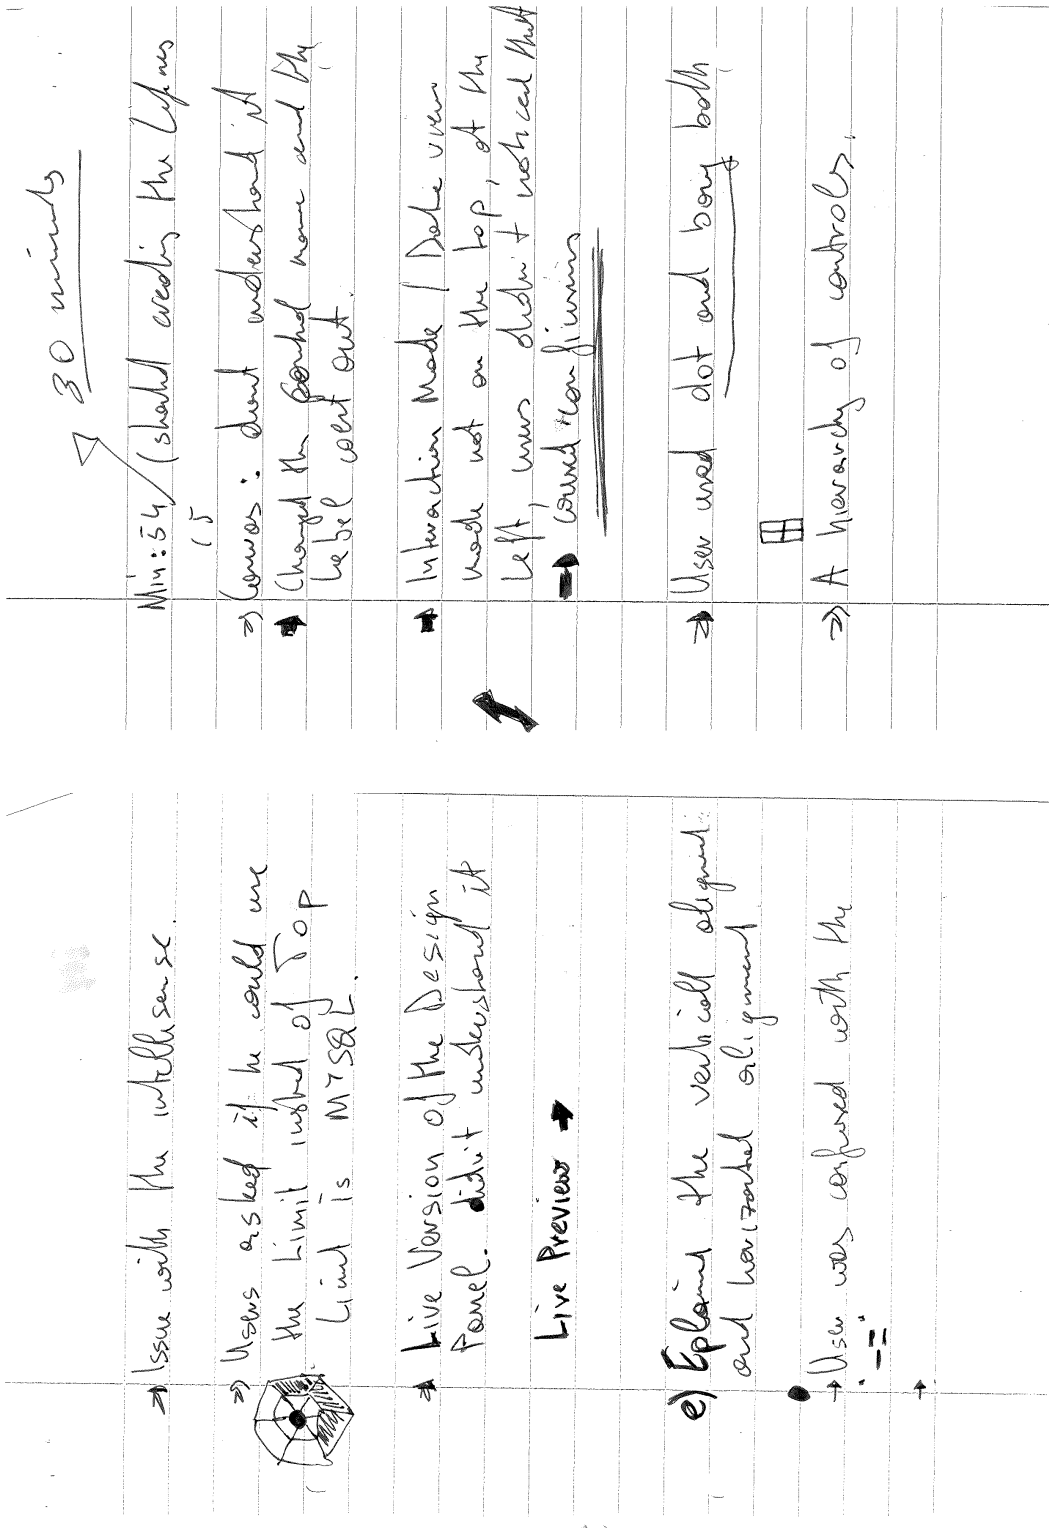 30 minuts
Min: 54 / (should creating the
15
=) Canvas: dont understand it
Changed the name and the
Label went out.
Interaction Mode / Data view
mode not on the top, at the
Left, users didn't noticed that
=) User used dot and both
=) A hierarchy of controls.
Issue with the intellisense.
=) Users asked if he could use
the Limit insted of TOP
Limit is MYSQL.
Live Version of the Design
Panel. didnit understand it
Live Preview
e) Eplaind the verticall
and horizontal alignment
User was confused with the